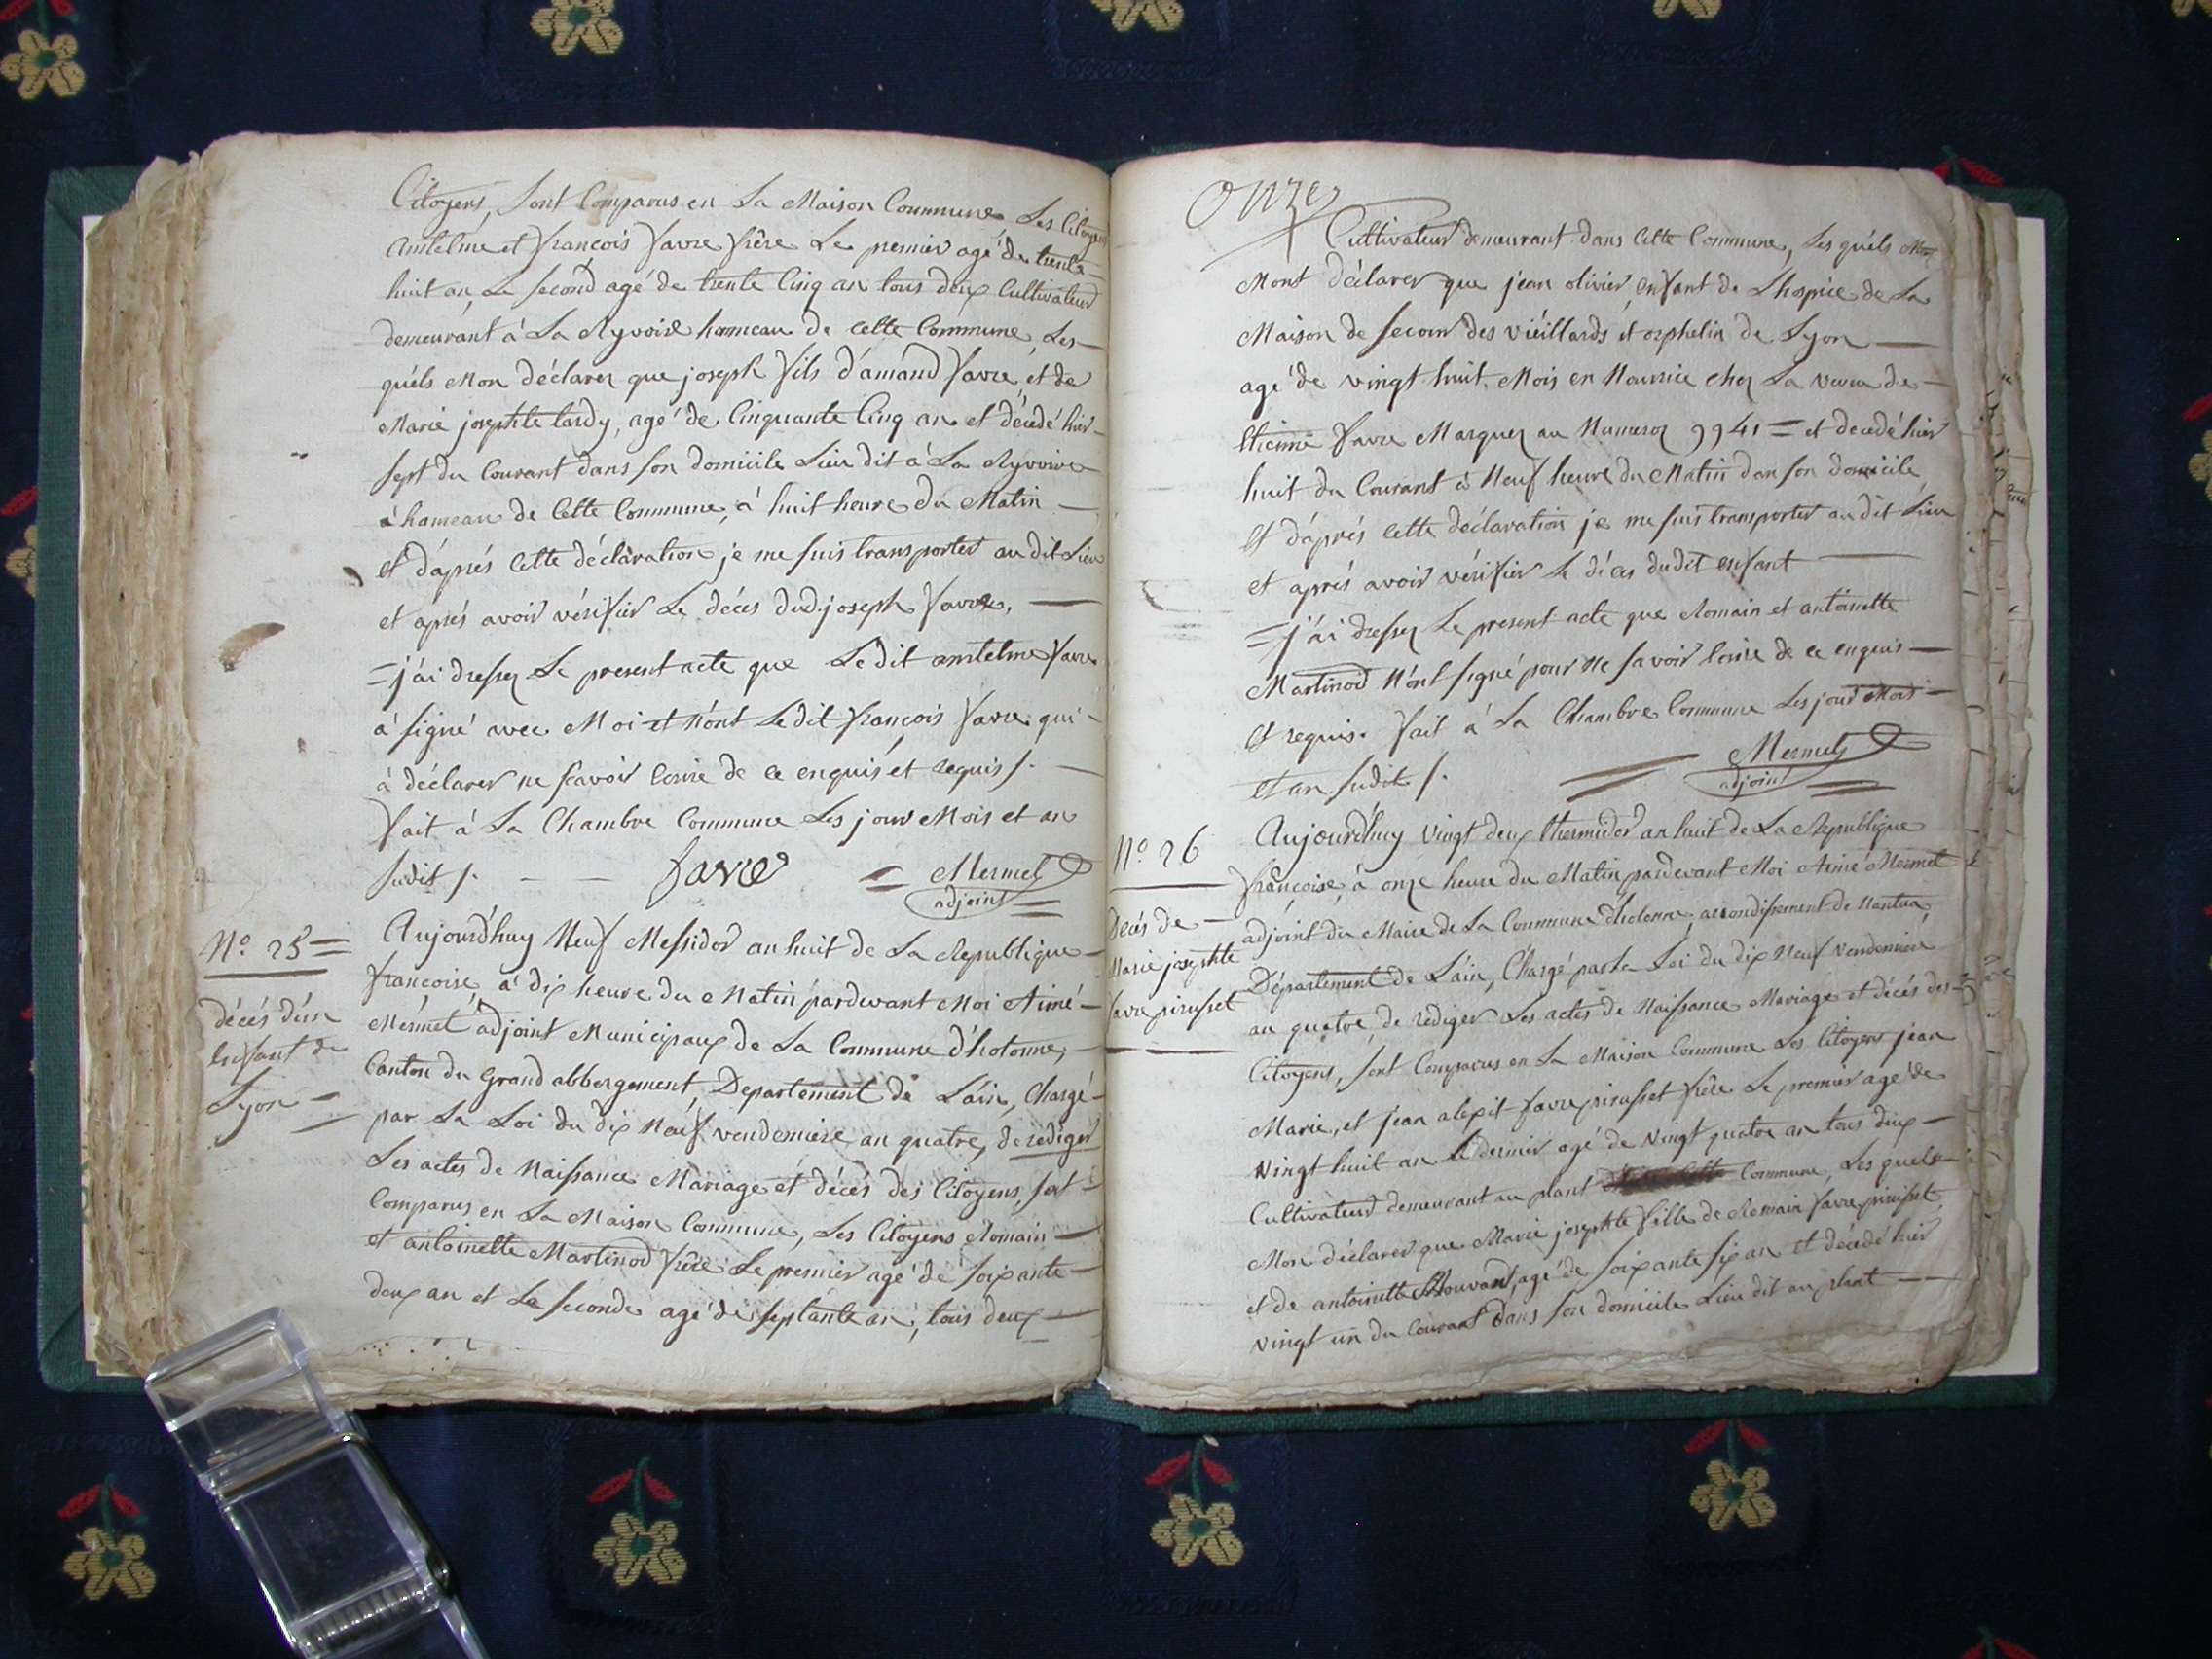 Citoyens, sont Comparus en La Maison Commune Les Citoyens
Amtelme et françois favre frère Le premier agé de trente
huit an, Le second agé de trente Cinq an tous deux Cultivateurs
demeurant à La Ryvoire hameau de Cette Commune, Les
quéls Mon déclarer que joseph fils d'amand favre, et de
Marie josephte tardy, agé de Cinquante Cinq an et décédé hier
sept du Courant dans son domicile Lieu dit à La Ryvoire
à hameau de Cette Commune, à huit heure du Matin
et d'après Cette déclaration je me suis transporter au dit Lieu
et après avoir vérifier Le décés dud. joseph favre,
= j'ai dressez Le present acte que Le dit amtelme favre
à signé avec Moi et Nónt Ledit françois favre qui
à déclarer ne sçavoir écrire de ce enquis et requis /.
fait à La Chambre Commune Les jour Mois et an
Sudit /. favre = Mermet
adjoint
No. 25 =
décés d'un
Enfant de
Lyon =
Aujourd'huy Neuf Messidor an huit de La Republique
francoise à dix heure du Matin pardevant Moi Aimé
Mermet adjoint Municipaux de La Commune d'hotonne,
Canton du Grand abbergement, Departement de L'ain, Chargé
par La Loi du dix Neuf vendemiere an quatre, de rediger
Les actes de Naissance Mariage et décés des Citoyens, sont
Comparus en La Maison Commune, Les Citoyens Romain
et antoinette Martinod frère Le premier agé de soixante
deux an et La seconde agé de septante an, tous deux
Onze
Cultivateur demeurant dans Cette Commune, Les quéls
Mont déclarer que jean olivier, enfant de L'hospice de La
Maison de secour des viéillards et orphelin de Lyon
agé de vingt huit Mois en Nourrice chez La veuve de
Etienne favre Marquez au Numeroz 9941 = et decedé hier
huit du Courant à Neuf heure du Matin dan son domicile
Et d'après Cette déclaration je me suis transporter au dit Lieu
et après avoir vérifier Le décés dudit enfant
= j'ai dressez Le present acte que Romain et antoinette
Martinod N'ónt signé pour Ne savoir écrire de ce enquis
Et requis. fait à La Chambre Commune Les jour Mois
et an sudit /. Mermet
adjoint
No. 26
Décés de
Marie josephte
favre pirusset
Aujourd'huy vingt deux thermidor an huit de La Republique
françoise, à onze heure du Matin pardevant Moi Aimé Mermet
adjoint du Maire de La Commune d'hotonne, arrondissement de Nantua,
Département de L'ain, Chargé par La Loi du dix Neuf vendemiere
an quatre, de rediger Les actes de Naissance Mariage et décés des
Citoyens, sont Comparus en La Maison Commune Les Citoyens jean
Marie, et jean alexit favre pirusset frère Le premier agé de
vingt huit an Le dernier agé de vingt quatre an tous deux
Cultivateurs demeurant au plant Commune, Les quels
Mon déclarer que Marie josephte fille de Romain favre pirusset
et de antoinette Bouvard, agé de soixante six an et décédé hier
vingt un du Courant dans son domicile Lieu dit au plant